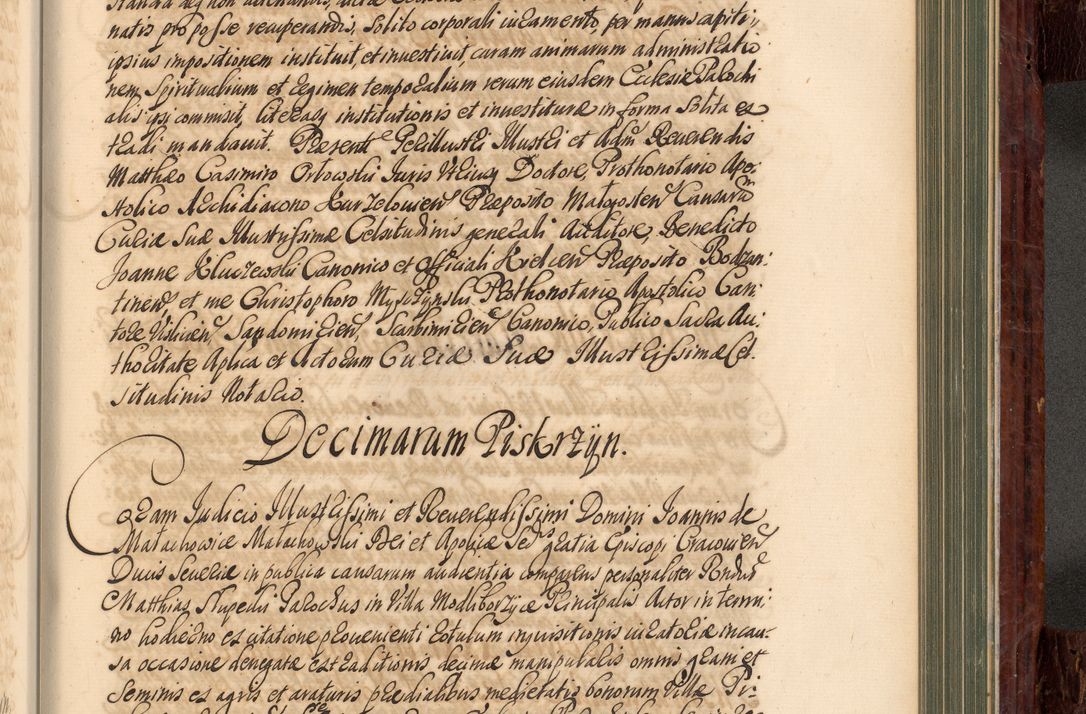 natis pro posse recuperandis, solito corporali iuramento, per manus capiti
ipsius impositionem instituit, et investivit, curam animarum administratio
nem Spiritualium et regimen temporalium rerum eiusdem Ecclesiæ Parochi
alis ipsi commisit, literasq institutionis et investituræ in forma solita ex
tradi mandavit. Præsente Perillustri Illustri et Adm Reverendis
Matthæo Casimiro Orłowski Juris Vtriusq Doctore, Prothonotario Apo:
stolico Archidiacono Kurzelovien Præposito Małogosten Causarum
Curiæ Suæ Illustrissimæ Celsitudinis generali Auditore, Benedicto
Joanne Kluczewski Canonico et officiali Kielcien Præposito Bodzan:
tinen, et me Christophoro Myszczynski Prothonotario Apostolico Can:
tore Vislicien, Sandomirien, Scarbimirien Canonico, Publico Sacra Au:
thoritate Aplica et Actorum Curiæ Suæ Illustrissimæ Cel
situdinis Notario.
Decimarum Piskrzyn.
Coram Judicio Illustrissimi et Reverendissimi Domini Joannis de
Małachowice Małachowski Dei et Aplicæ Sed gratia Episcopi Cracovien
Ducis Severiæ in publica causarum audientia comparens personaliter Rndus
Matthias Słupecki Parochus in Villa Modliborzyce Principalis Actor in termi:
no hodierno ex citatione provenienti rotulum inquisitionis iuratoriæ in cau:
sa occasione denegatæ extraditionis decimæ manipularis omnis grani et
seminis ex agris et araturis prædialibus medietatis bonorum Villæ Pi: